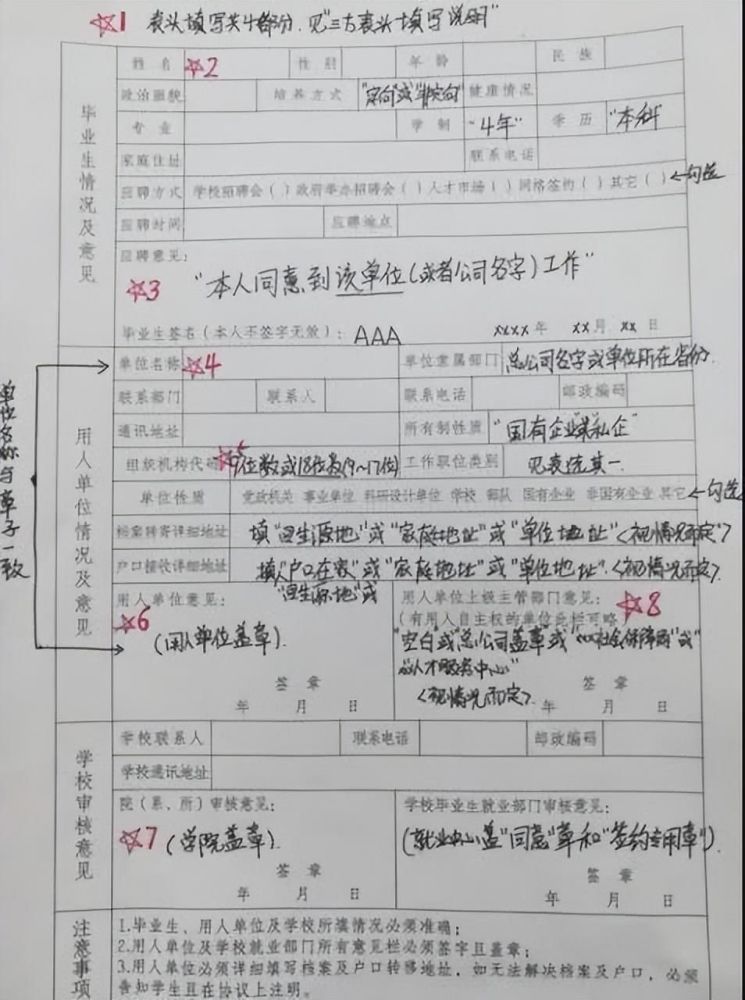 ☆1 表头填写共4部分.见"三方表头填写说明"
毕业生情况及意见
姓名 ☆2 性别 年龄 民族
政治面貌 培养方式 "定向"或"非定向" 健康情况
专业 学制 "4年" 学历 "本科"
家庭住址 联系电话
应聘方式 学校招聘会( ) 政府举办招聘会( ) 人才市场( ) 网络签约( ) 其它( ) ←勾选
应聘时间 应聘地点
应聘意见:
☆3 "本人同意到该单位(或者公司名字)工作"
毕业生签名(本人不签字无效): AAA xxxx年 xx月 xx日
单位名称与章子一致
用人单位情况及意见
单位名称 ☆4 单位隶属部门 总公司名字或单位所在省份.
联系部门 联系人 联系电话 邮政编码
通讯地址 所有制性质 "国有企业或私企"
组织机构代码 ☆5 9位数或18位数(9~17位) 工作职位类别 见表选其一.
单位性质 党政机关 事业单位 科研设计单位 学校 部队 国有企业 非国有企业 其它 ←勾选
档案转寄详细地址 填"回生源地"或"家庭地址"或"单位地址"<视情况而定>
户口接收详细地址 填"户口在家"或"家庭地址"或"单位地址".<视情况而定>.
"回生源地"或
用人单位意见:
☆6
(用人单位盖章).
签 章
年 月 日
用人单位上级主管部门意见:
(有用人自主权的单位此栏可略) ☆8
"空白"或"总公司盖章"或"xx社会保障局"或"
xx人才服务中心"
<视情况而定>.
签 章
年 月 日
学校审核意见
学校联系人 联系电话 邮政编码
学校通讯地址
院(系、所)审核意见:
☆7 (学院盖章).
签 章
年 月 日
学校毕业生就业部门审核意见:
(就业中心盖"同意"章和"签约专用章").
签 章
年 月 日
注意事项
1.毕业生、用人单位及学校所填情况必须准确;
2.用人单位及学校就业部门所有意见栏必须签字且盖章;
3.用人单位必须详细填写档案及户口转移地址,如无法解决档案及户口,必须
告知学生且在协议上注明。